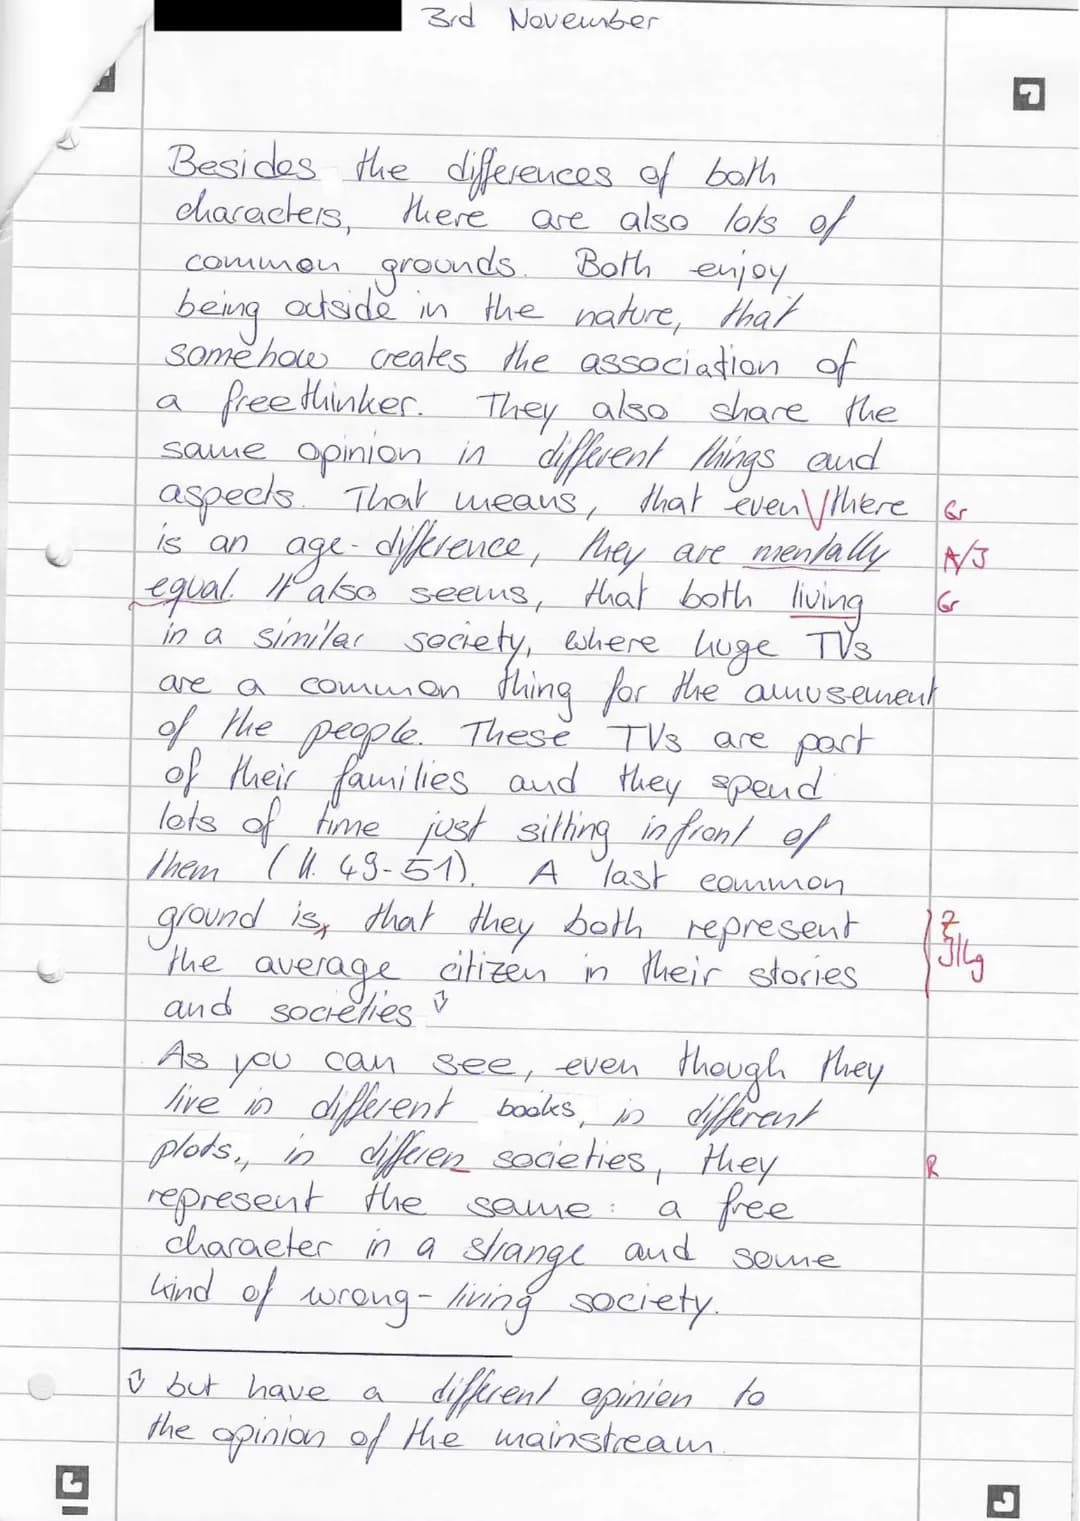 3rd November
Besides the differences of both
characters, there are also lots of
common grounds. Both enjoy
being outside in the nature, that
somehow creates the association of
a freethinker. They also share the
same opinion in different things and
aspects. That means, that even there Gr
is an age-difference, they are mentally A/J
equal. It also seems, that both living Gr
in a similar society, where huge TVs
are a common thing for the amusement
of the people. These TVs are part
of their families and they spend
lots of time just sitting infront of
them (ll. 49-51). A last common
ground is, that they both represent Z
the average citizen in their stories
and societies
As you can see, even though they
live in different books, in different
plots, in differen societies, they R
represent the same: a free
character in a strange and some
kind of wrong-living society.
but have a different opinion to
the opinion of the mainstream.